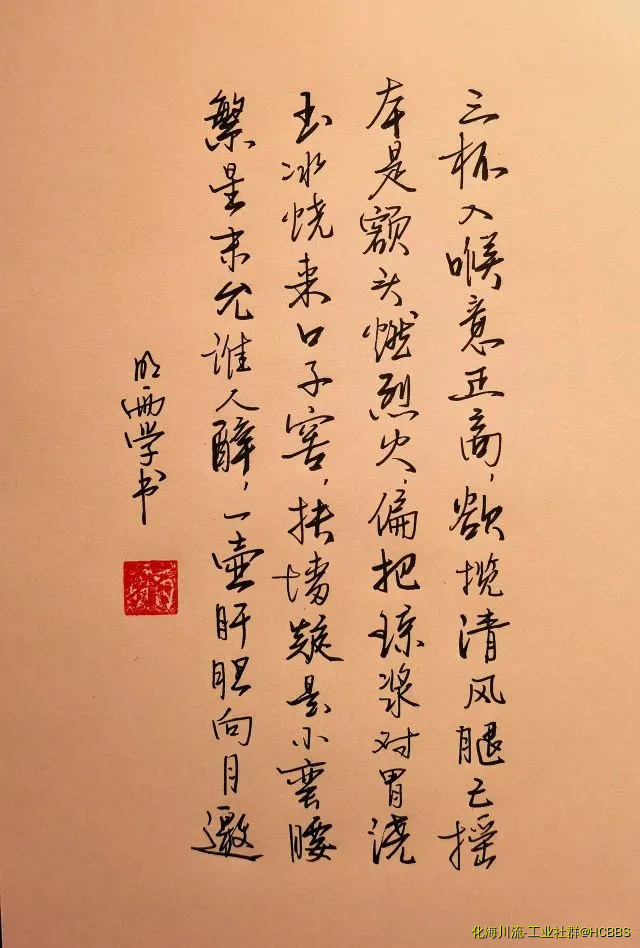 三杯入喉意正高，欲揽清风腿已摇
本是额头燃烈火，偏把琼浆对胃浇
玉冰烧来口子窖，扶墙疑是小蛮腰
繁星未允谁人醉，一壶肝胆向月邀
明西学书
化海川流-工业社群@HCBBS